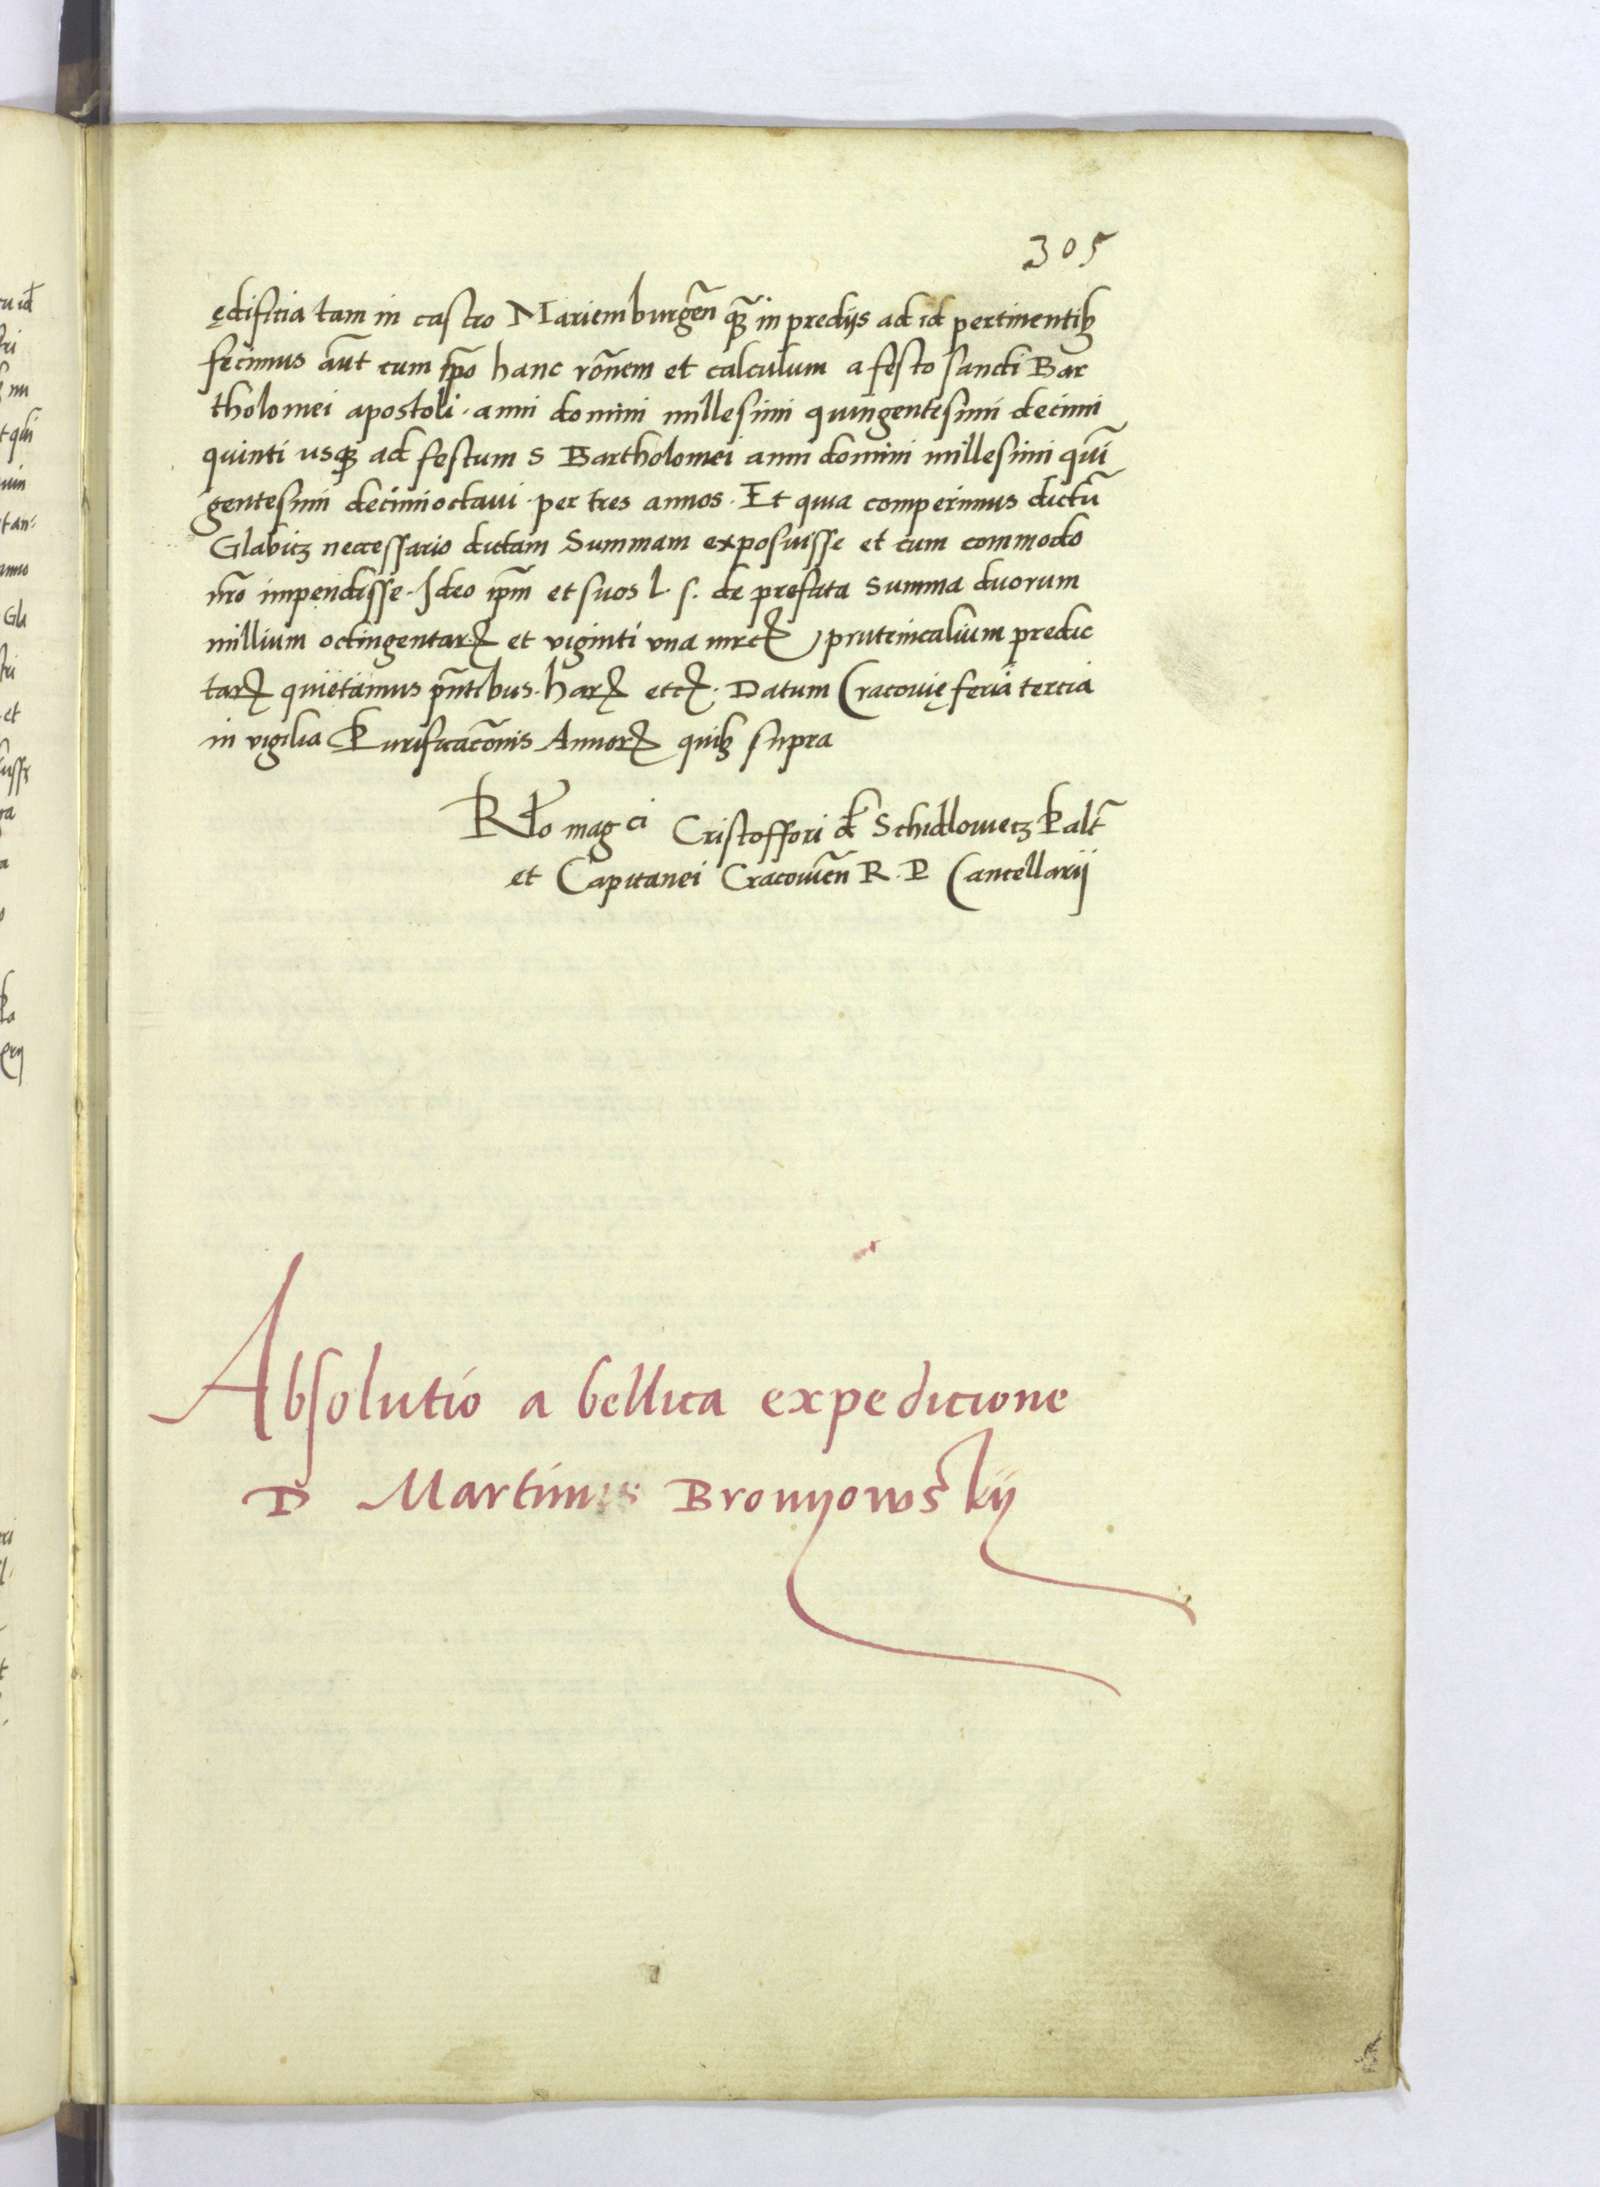 305
ędificia tam in castro Mariemburgeñ q̃ꝫ in predijs ad id pertinentibꝫ
fecimus aũt cum ip̃o hanc rõnem et calculum a festo sancti Bar
tholomei apostoli · anni domini millesimi quingentesimi decimi
quinti usqꝫ ad festum S Bartholomei anni domini millesimi quĩ
gentesimi decimioctavi · per tres annos · Et quia comperimus dictũ
Glabicz necessario dictam Summam exposuisse et cum commodo
nr̃o impendisse · Ideo ip̃m et suos l. s. de prefata summa duorum
millium octingentarꝝ et viginti una mrcꝝ prutenicalium predic
tarꝝ quietamus p̃ntibus · harꝝ etcꝝ · Datum Cracovię feria tercia
in vigilia Purificac̃onis Annorꝝ quibꝫ supra
Rel̃o magci Cristoffori de Schidlowecz Palt̃
et Capitanei Cracovieñ R. P Cancellarij
Absolutio a bellica expedicione
D Martinus Bronyowskij
tu id
Gla
et